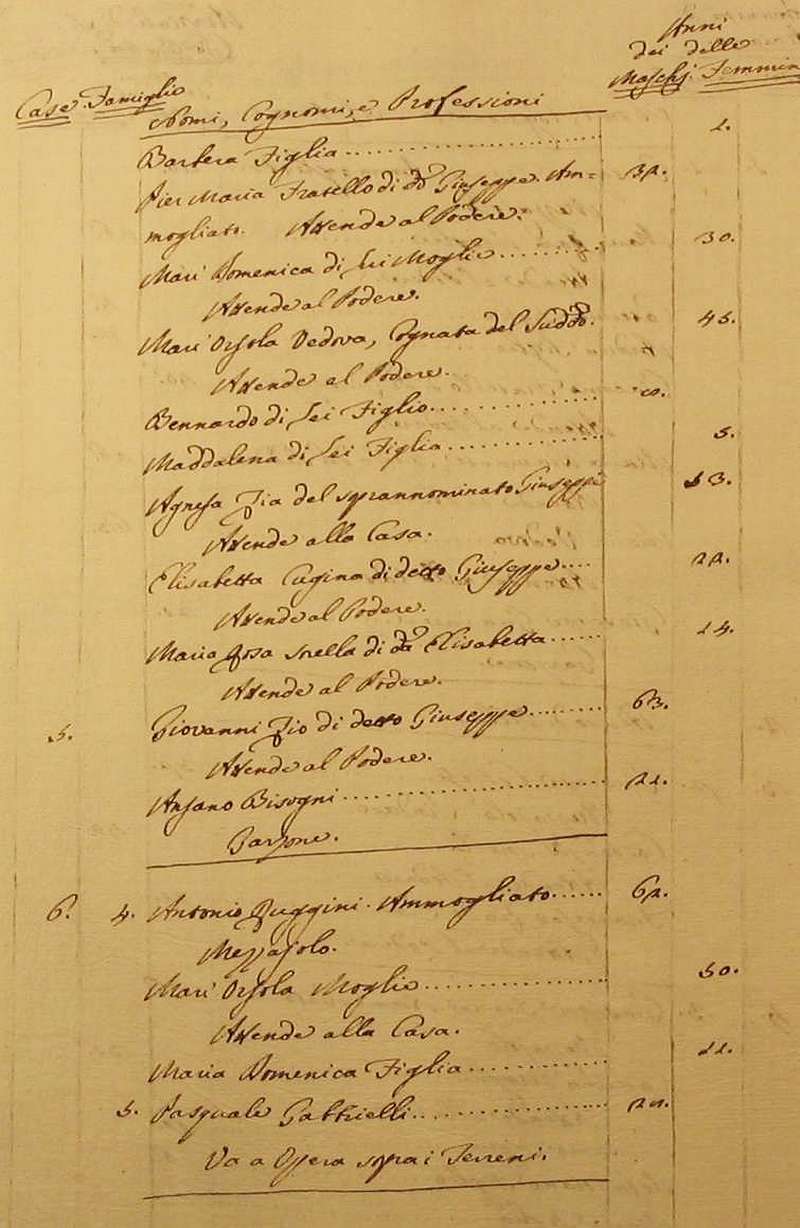 Anni
dei delle
Case. Famiglie Nomi, Cognomi, e Professioni Maschj. Femmin
Barbera Figlia 1.
Pier Maria Fratello di do Giuseppe. Am= 32.
mogliato. Attende al Podere.
Mari' Domenica di Lui Moglie 30.
Attende al Podere.
Mari' Orsola Vedova, Cognata del Suddo. 45.
Attende al Podere.
Bennardo di Lei Figlio
Maddalena di Lei Figlia 5.
Agnesa Zia del soprannominato Giuseppe 53.
Attende alla Casa.
Elisabetta Cugina di detto Giuseppe 22.
Attende al Podere.
Maria Rosa Sorella di da Elisabetta 14.
Attende al Podere.
5. Giovanni Zio di detto Giuseppe 63.
Attende al Podere.
Ansano Bisogni 21.
Garzone.
6. 4. Antonio Ruggini. Ammogliato 62.
Mezzajolo.
Mari' Orsola Moglie 50.
Attende alla Casa.
Maria Domenica Figlia 11.
5. Pasquale Gabbrielli
Va a Opera sopra i Terreni.